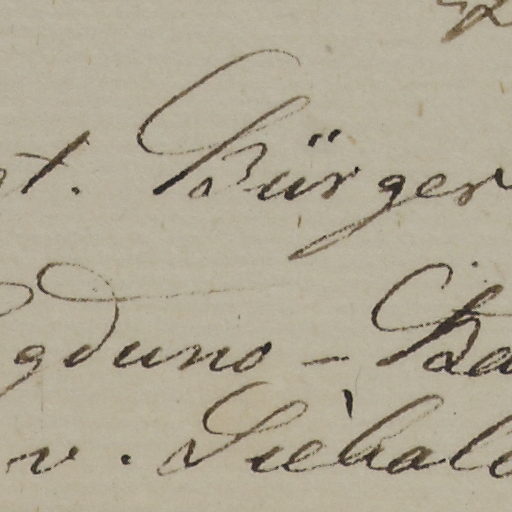 gt. Bürger
gduno - Ba
v. Siebale